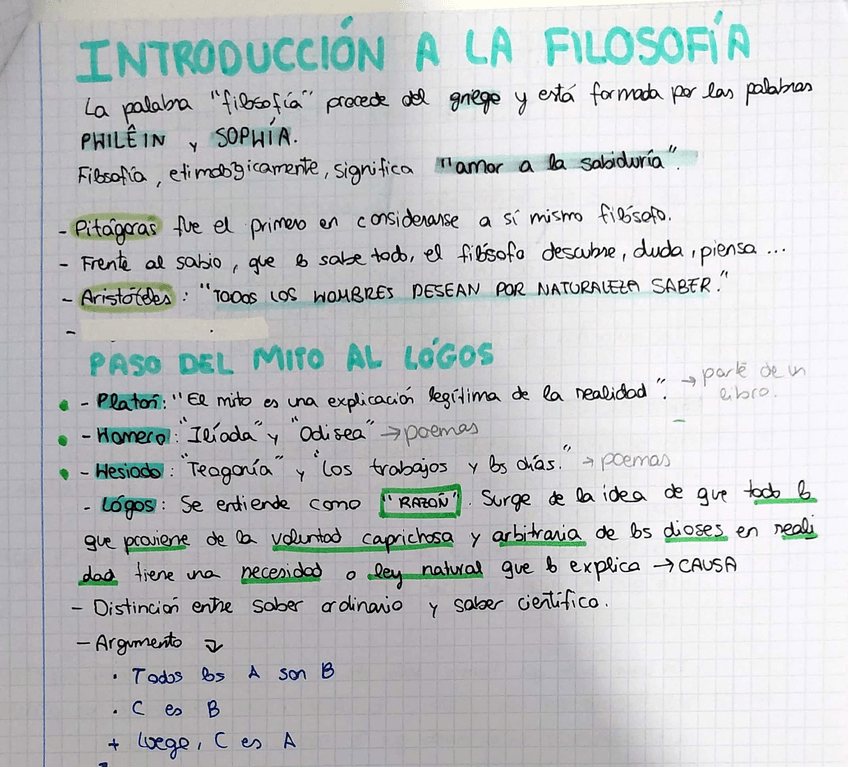 INTRODUCCIÓN A LA FILOSOFÍA
La palabra "filosofía" procede del griego y está formada por las palabras
PHILÊIN y SOPHÍA.
Filosofía, etimológicamente, significa "amor a la sabiduría".
- Pitágoras fue el primero en considerarse a sí mismo filósofo.
- Frente al sabio, que lo sabe todo, el filósofo descubre, duda, piensa ...
- Aristóteles: "TODOS LOS HOMBRES DESEAN POR NATURALEZA SABER."
-
PASO DEL MITO AL LÓGOS
- Platón: "El mito es una explicación legítima de la realidad". → parte de un
libro.
- Homero: "Ilíada" y "Odisea" → poemas
- Hesiodo: "Teogonía" y "Los trabajos y los días." → poemas
- Lógos: Se entiende como "RAZÓN". Surge de la idea de que todo lo
que proviene de la voluntad caprichosa y arbitraria de los dioses en reali
dad tiene una necesidad o ley natural que lo explica → CAUSA
- Distinción entre saber ordinario y saber científico.
- Argumento ↓
· Todos los A son B
· C es B
+ luego, C es A